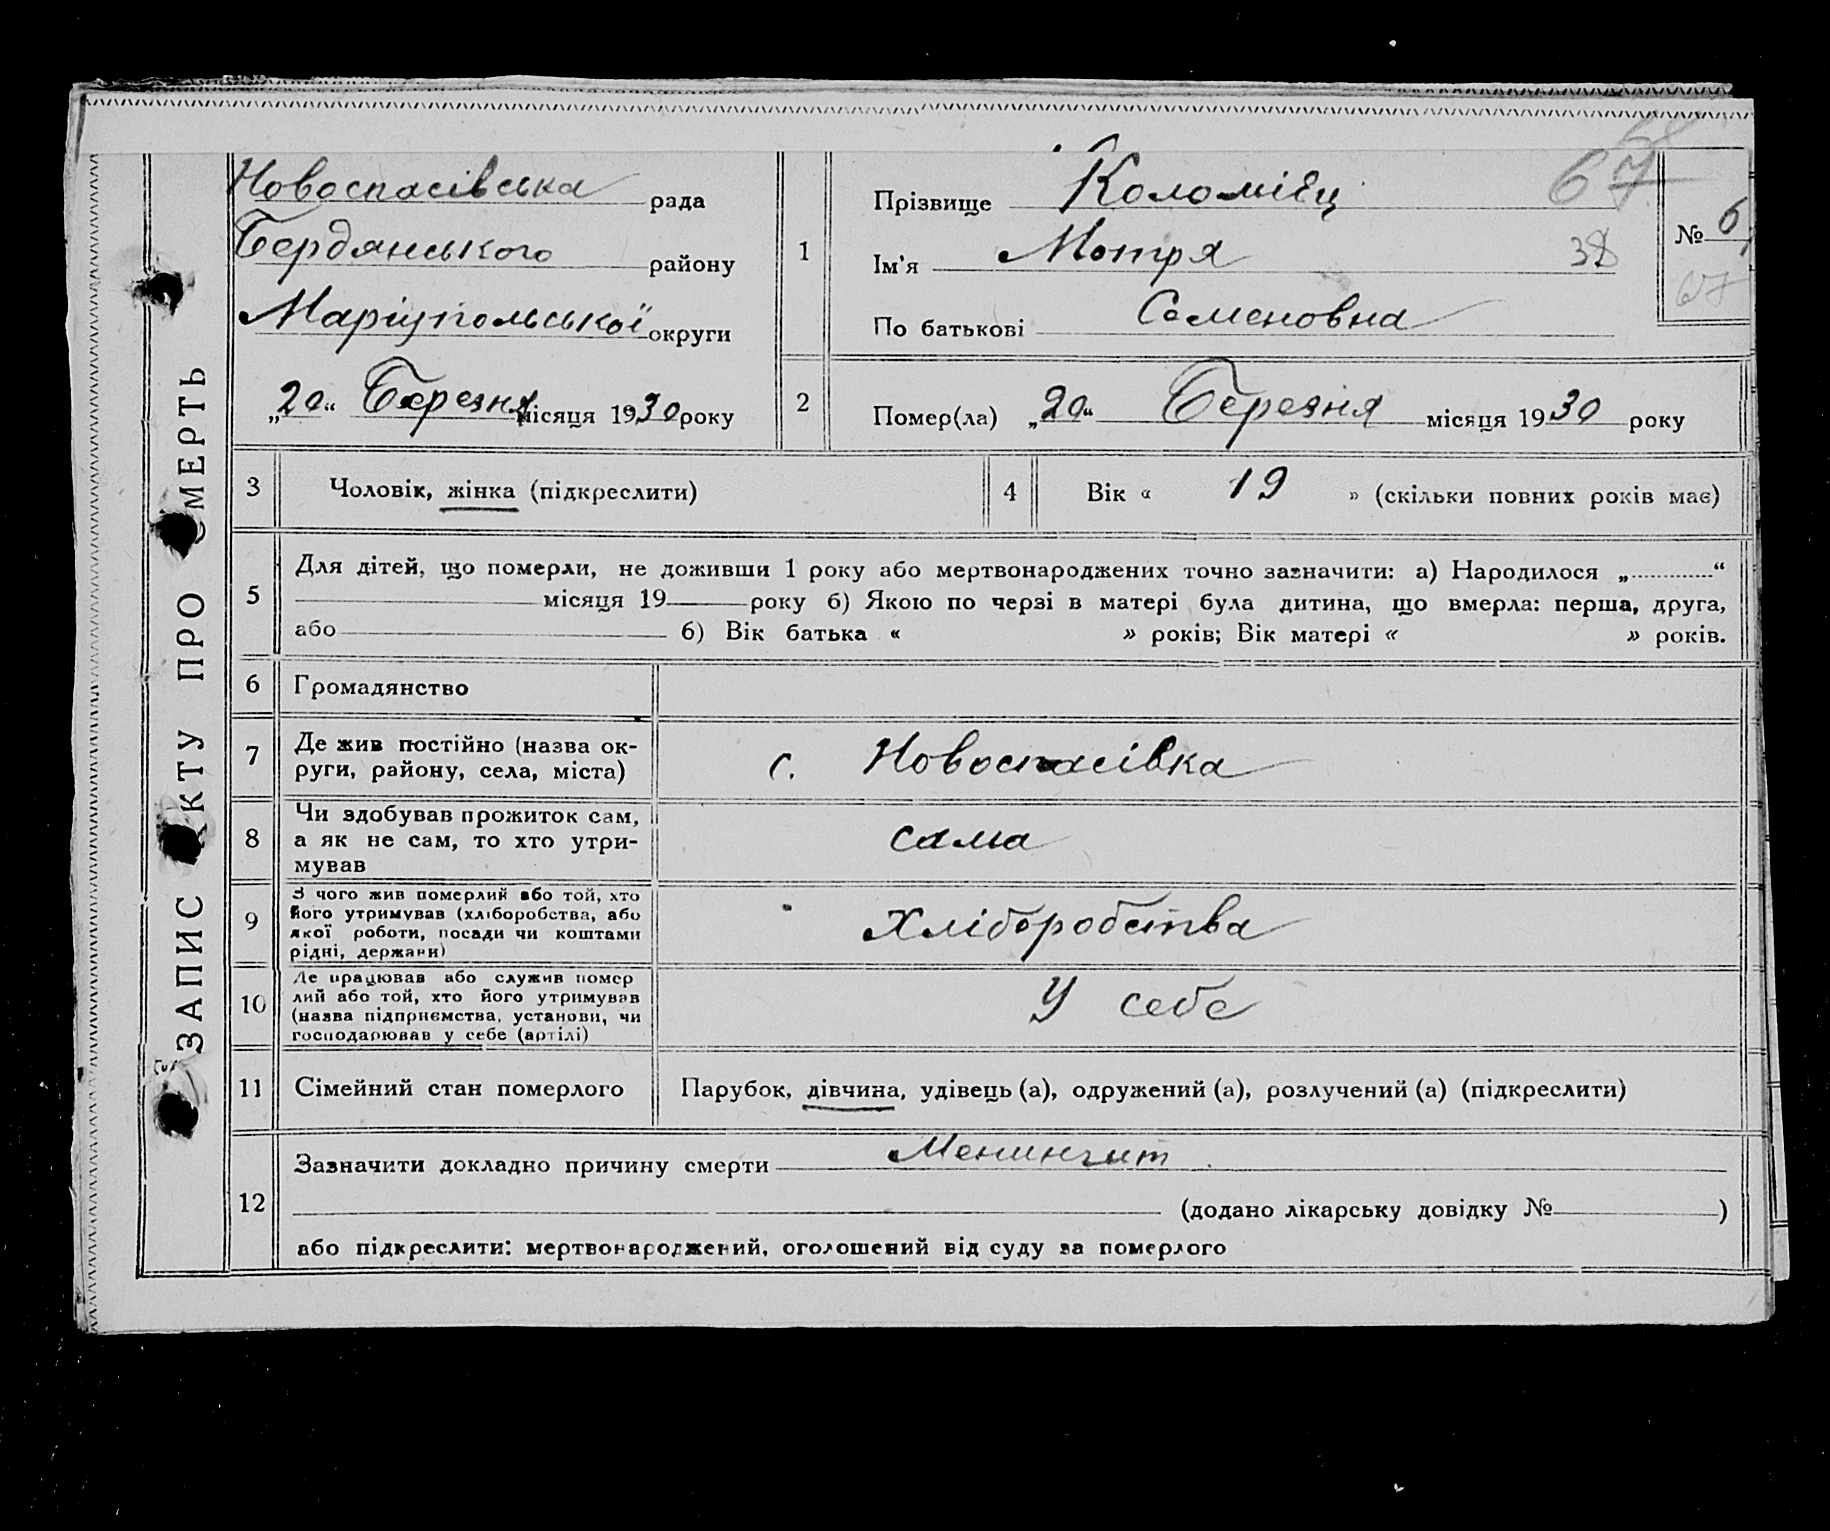 ЗАПИС АКТУ ПРО СМЕРТЬ
Новоспасівська рада
Бердянського району
Маріупольської округи
„20“ Березня місяця 1930 року
1
Прізвище Коломієц
Ім'я Мотря
По батькові Семеновна
67
38
№ 6
67
2
Помер(ла) „20“ Березня місяця 1930 року
3 Чоловік, жінка (підкреслити)
4 Вік « 19 » (скільки повних років має)
5 Для дітей, що померли, не доживши 1 року або мертвонароджених точно зазначити: а) Народилося „ “
місяця 19 року б) Якою по черзі в матері була дитина, що вмерла: перша, друга,
або б) Вік батька « » років; Вік матері « » років.
6 Громадянство
7 Де жив постійно (назва ок-
руги, району, села, міста)
с. Новоспасівка
8 Чи здобував прожиток сам,
а як не сам, то хто утри-
мував
сама
9 З чого жив померлий або той, хто
його утримував (хліборобства, або
якої роботи, посади чи коштами
рідні, держави)
Хліборобства
10 Де працював або служив помер
лий або той, хто його утримував
(назва підприємства, установи, чи
господарював у себе (артілі)
У себе
11 Сімейний стан померлого
Парубок, дівчина, удівець (а), одружений (а), розлучений (а) (підкреслити)
12 Зазначити докладно причину смерти Менингит
(додано лікарську довідку № )
або підкреслити: мертвонароджений, оголошений від суду за померлого